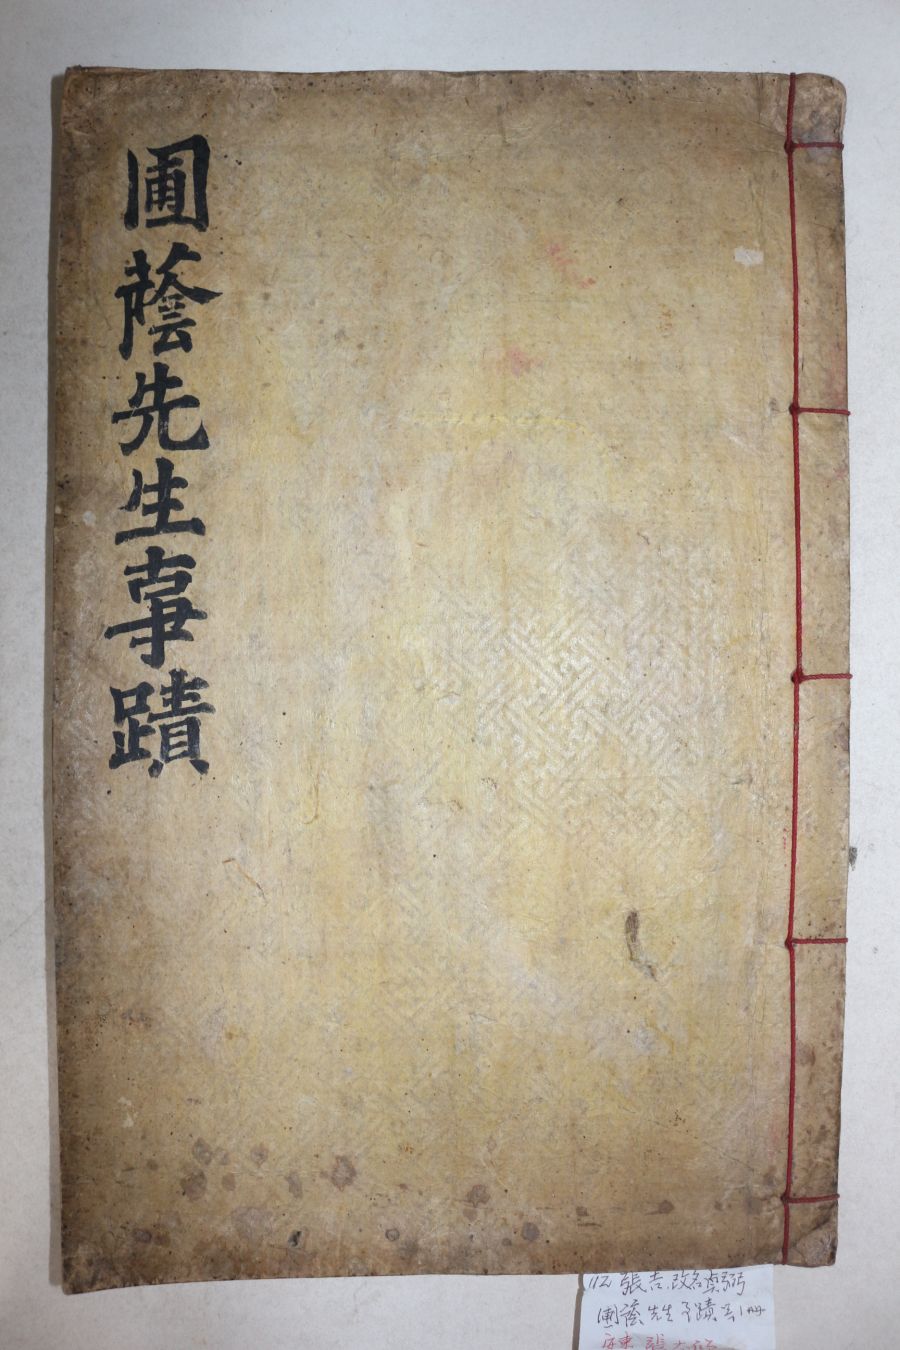 圃蔭先生事蹟
112 張吉.改名奭弼
圃蔭先生事蹟 1冊
張